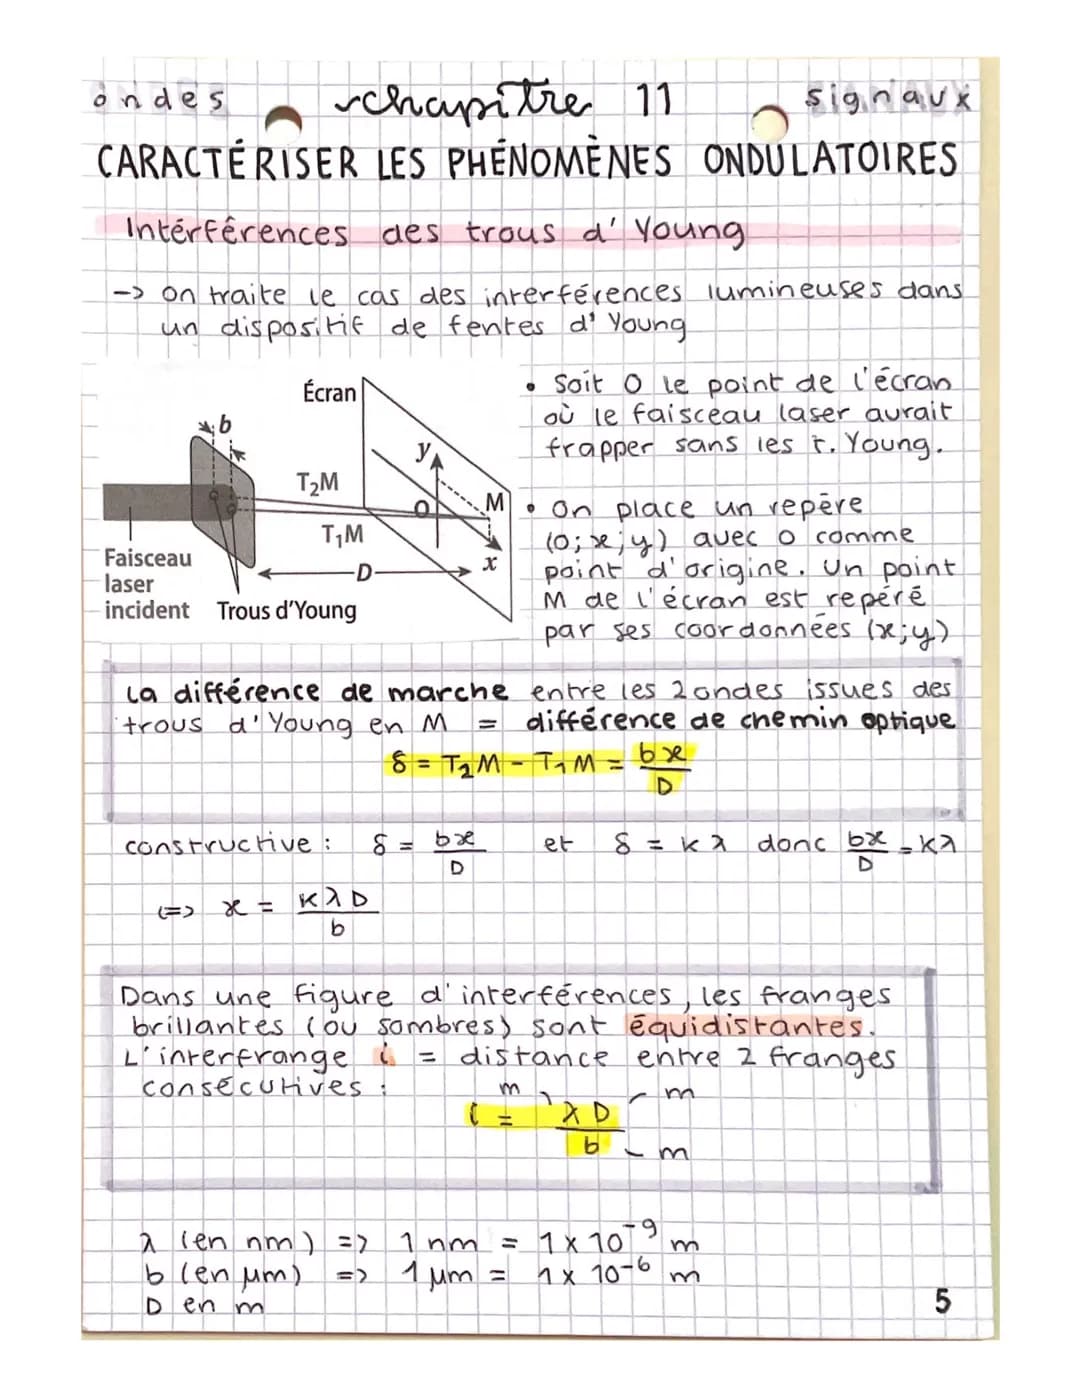 ondes chapitre 11 signaux
CARACTÉRISER LES PHÉNOMÈNES ONDULATOIRES
Intérférences des trous d'Young
-> on traite le cas des interférences lumineuses dans
un dispositif de fentes d'Young
Écran
b
y
T₂M
M
O
T₁M
x
D
Faisceau
laser
incident
Trous d'Young
• Soit O le point de l'écran
où le faisceau laser aurait
frapper sans les t. Young.
• On place un repère
(O; x; y) avec O comme
point d'origine. Un point
M de l'écran est repéré
par ses coordonnées (x;y)
La différence de marche entre les 2 ondes issues des
trous d'Young en M = différence de chemin optique
δ = T₂M - T₁M = bx/D
constructive : δ = bx/D et δ = Kλ donc bx/D = Kλ
<=> x = KλD/b
Dans une figure d'interférences, les franges
brillantes (ou sombres) sont équidistantes.
L'interfrange i = distance entre 2 franges
consécutives :
m m
i = λD/b
m
λ (en nm) => 1 nm = 1 x 10⁻⁹ m
b (en µm) => 1 µm = 1 x 10⁻⁶ m
D en m
5